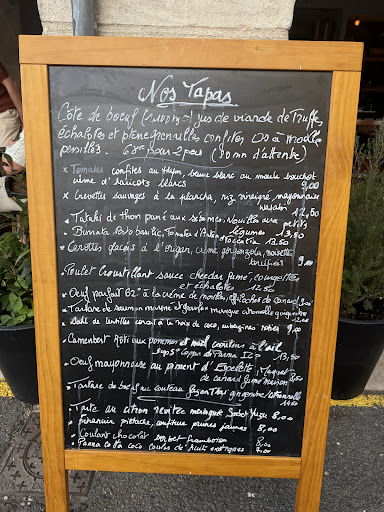 Nos Tapas
Côte de boeuf jus de viande de Truffes
échalotes et grenailles confites
persillés. 68€ pour 2 pers (30 mn d'attente)
x Tomates confites au thym, beurre blanc au maïs
crème d'haricots blancs 9,00
x Crevettes sauvages à la plancha, riz vinaigré mayonnaise
wasabi 12,50
x Tataki de thon pané aux sésames, Nouilles aux petits
légumes 13,50
x Burrata, Tomates d'Antan
focaccia 13.50
x Carottes glacés à l'origan, crème gorgonzola, noisette
torréfiées 9,00
Poulet Croustillant sauce cheddar fumé, courgettes
et échalote 12.50
x Oeuf parfait 62° à la crème de morilles, effiloché de canard
x Tartare de saumon marine et
12.00
x Dahl de lentilles corail à la noix de coco, aubergines roties 9,00
Camembert Rôti aux pommes et miel croutons à l'ail
Sup 5€ 13,50
x Oeuf mayonnaise au piment d'Espelette, Magret
de canard fumé maison 7.50
x Tartare de boeuf au couteau façon Thaï gingembre/citronnelle
14.50
x Tarte au citron revisitée meringuée Sorbet Yuzu 8,00
x Financier pistache, confiture prunes jaunes 8,00
x Coulant chocolat sorbet framboise 8,00
x Panna Cotta coco coulis de fruits exotiques 7.00